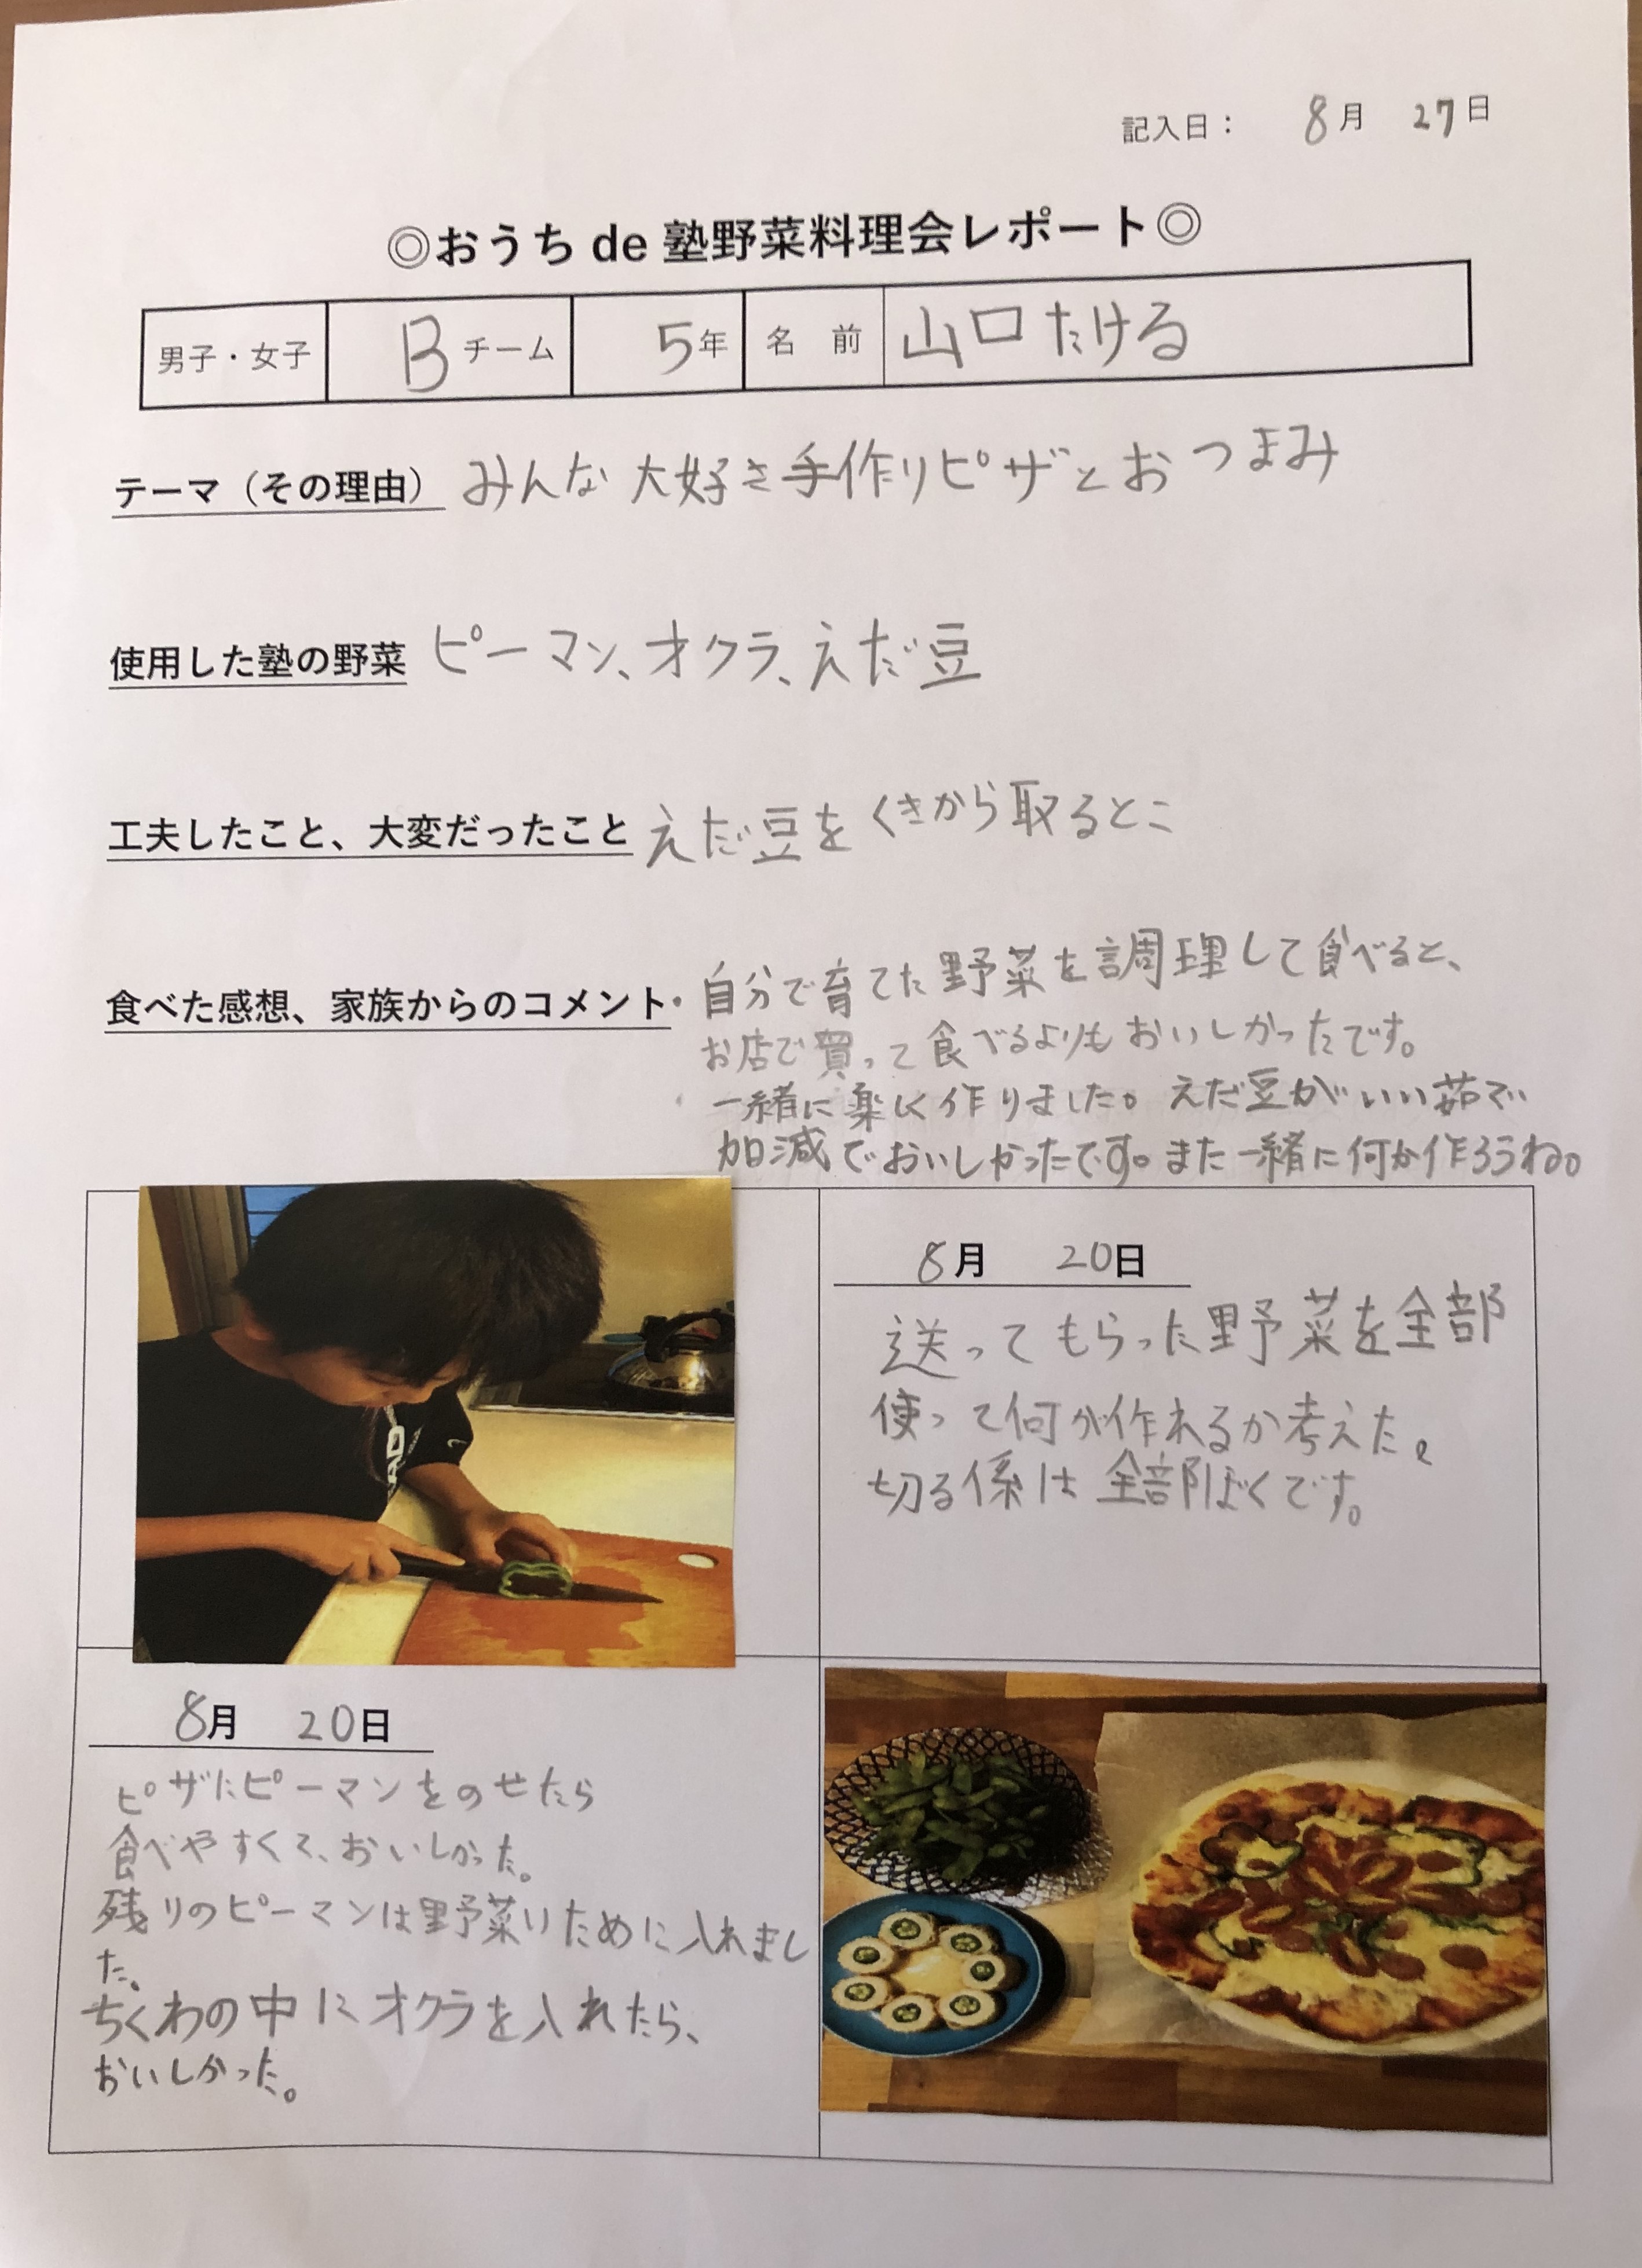 記入日： 8月 27日
◎おうち de 塾野菜料理会レポート◎
男子・女子 Bチーム 5年 名 前 山口たける
テーマ（その理由） みんな大好き手作りピザとおつまみ
使用した塾の野菜 ピーマン、オクラ、えだ豆
工夫したこと、大変だったこと えだ豆をくきから取るとこ
食べた感想、家族からのコメント・自分で育てた野菜を調理して食べると、
お店で買って食べるよりもおいしかったです。
・一緒に楽しく作りました。えだ豆がいい茹で
加減でおいしかったです。また一緒に何か作ろうね。
8月 20日
送ってもらった野菜を全部
使って何が作れるか考えた。
切る係は全部ぼくです。
8月 20日
ピザにピーマンをのせたら
食べやすくて、おいしかった。
残りのピーマンは野菜いために入れまし
た。
ちくわの中にオクラを入れたら、
おいしかった。